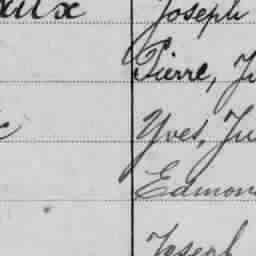 aux Joseph
Pierre, J
Yves, Ju
Edmon
Joseph